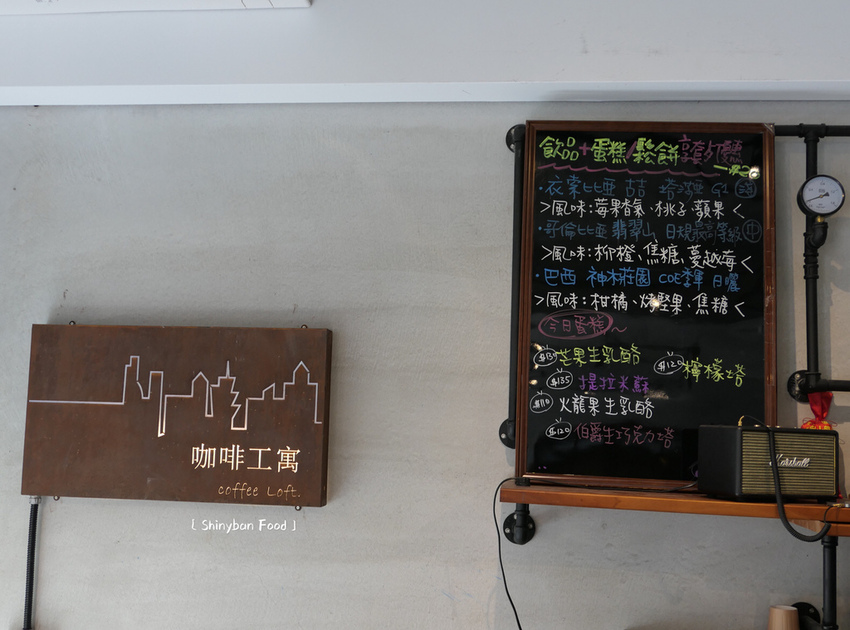 咖啡工寓
coffee Loft.
[ Shinybun Food ]
飲品+蛋糕/鬆餅享套
·衣索比亞 G1
>風味:莓果香氣、桃子、蘋果<
·哥倫比亞 翡翠山 日規最高等級 中
>風味:柳橙、焦糖、蔓越莓<
·巴西 神木莊園 COE季軍 日曬
>風味:柑橘、烤堅果、焦糖<
今日蛋糕~
芒果生乳酪
$120 檸檬塔
$135 提拉米蘇
$110 火龍果生乳酪
$120 伯爵生巧克力塔
Marshall